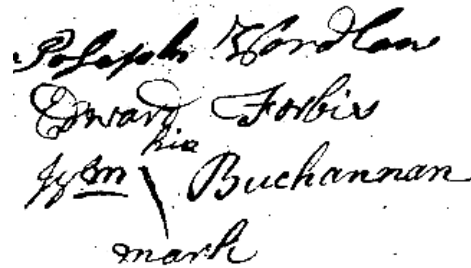 Joseph Wardlaw
Edward Forbis
his
Wm \ Buchannan
mark